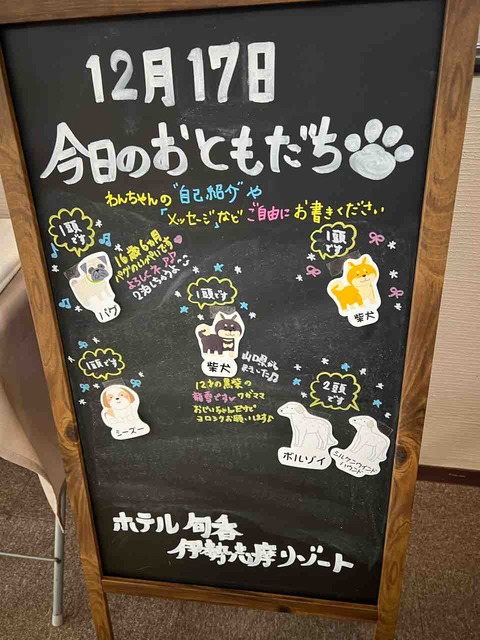 12月17日
今日のおともだち
わんちゃんの"自己紹介"や
「メッセージ」など ご自由に お書きください
1頭
です
16歳6ヵ月
パグの
です
よろしくネ
2泊しちゃうよ
パグ
1頭
です
柴犬
1頭です
柴犬
山口県から
来ました
12才の黒柴の
です
ワガママ
おじいちゃんだけど
ヨロシクお願いします♪
1頭です
シーズー
2頭
です
ボルゾイ
シルケンウインド
ハウンド
ホテル 旬香
伊勢志摩リゾート